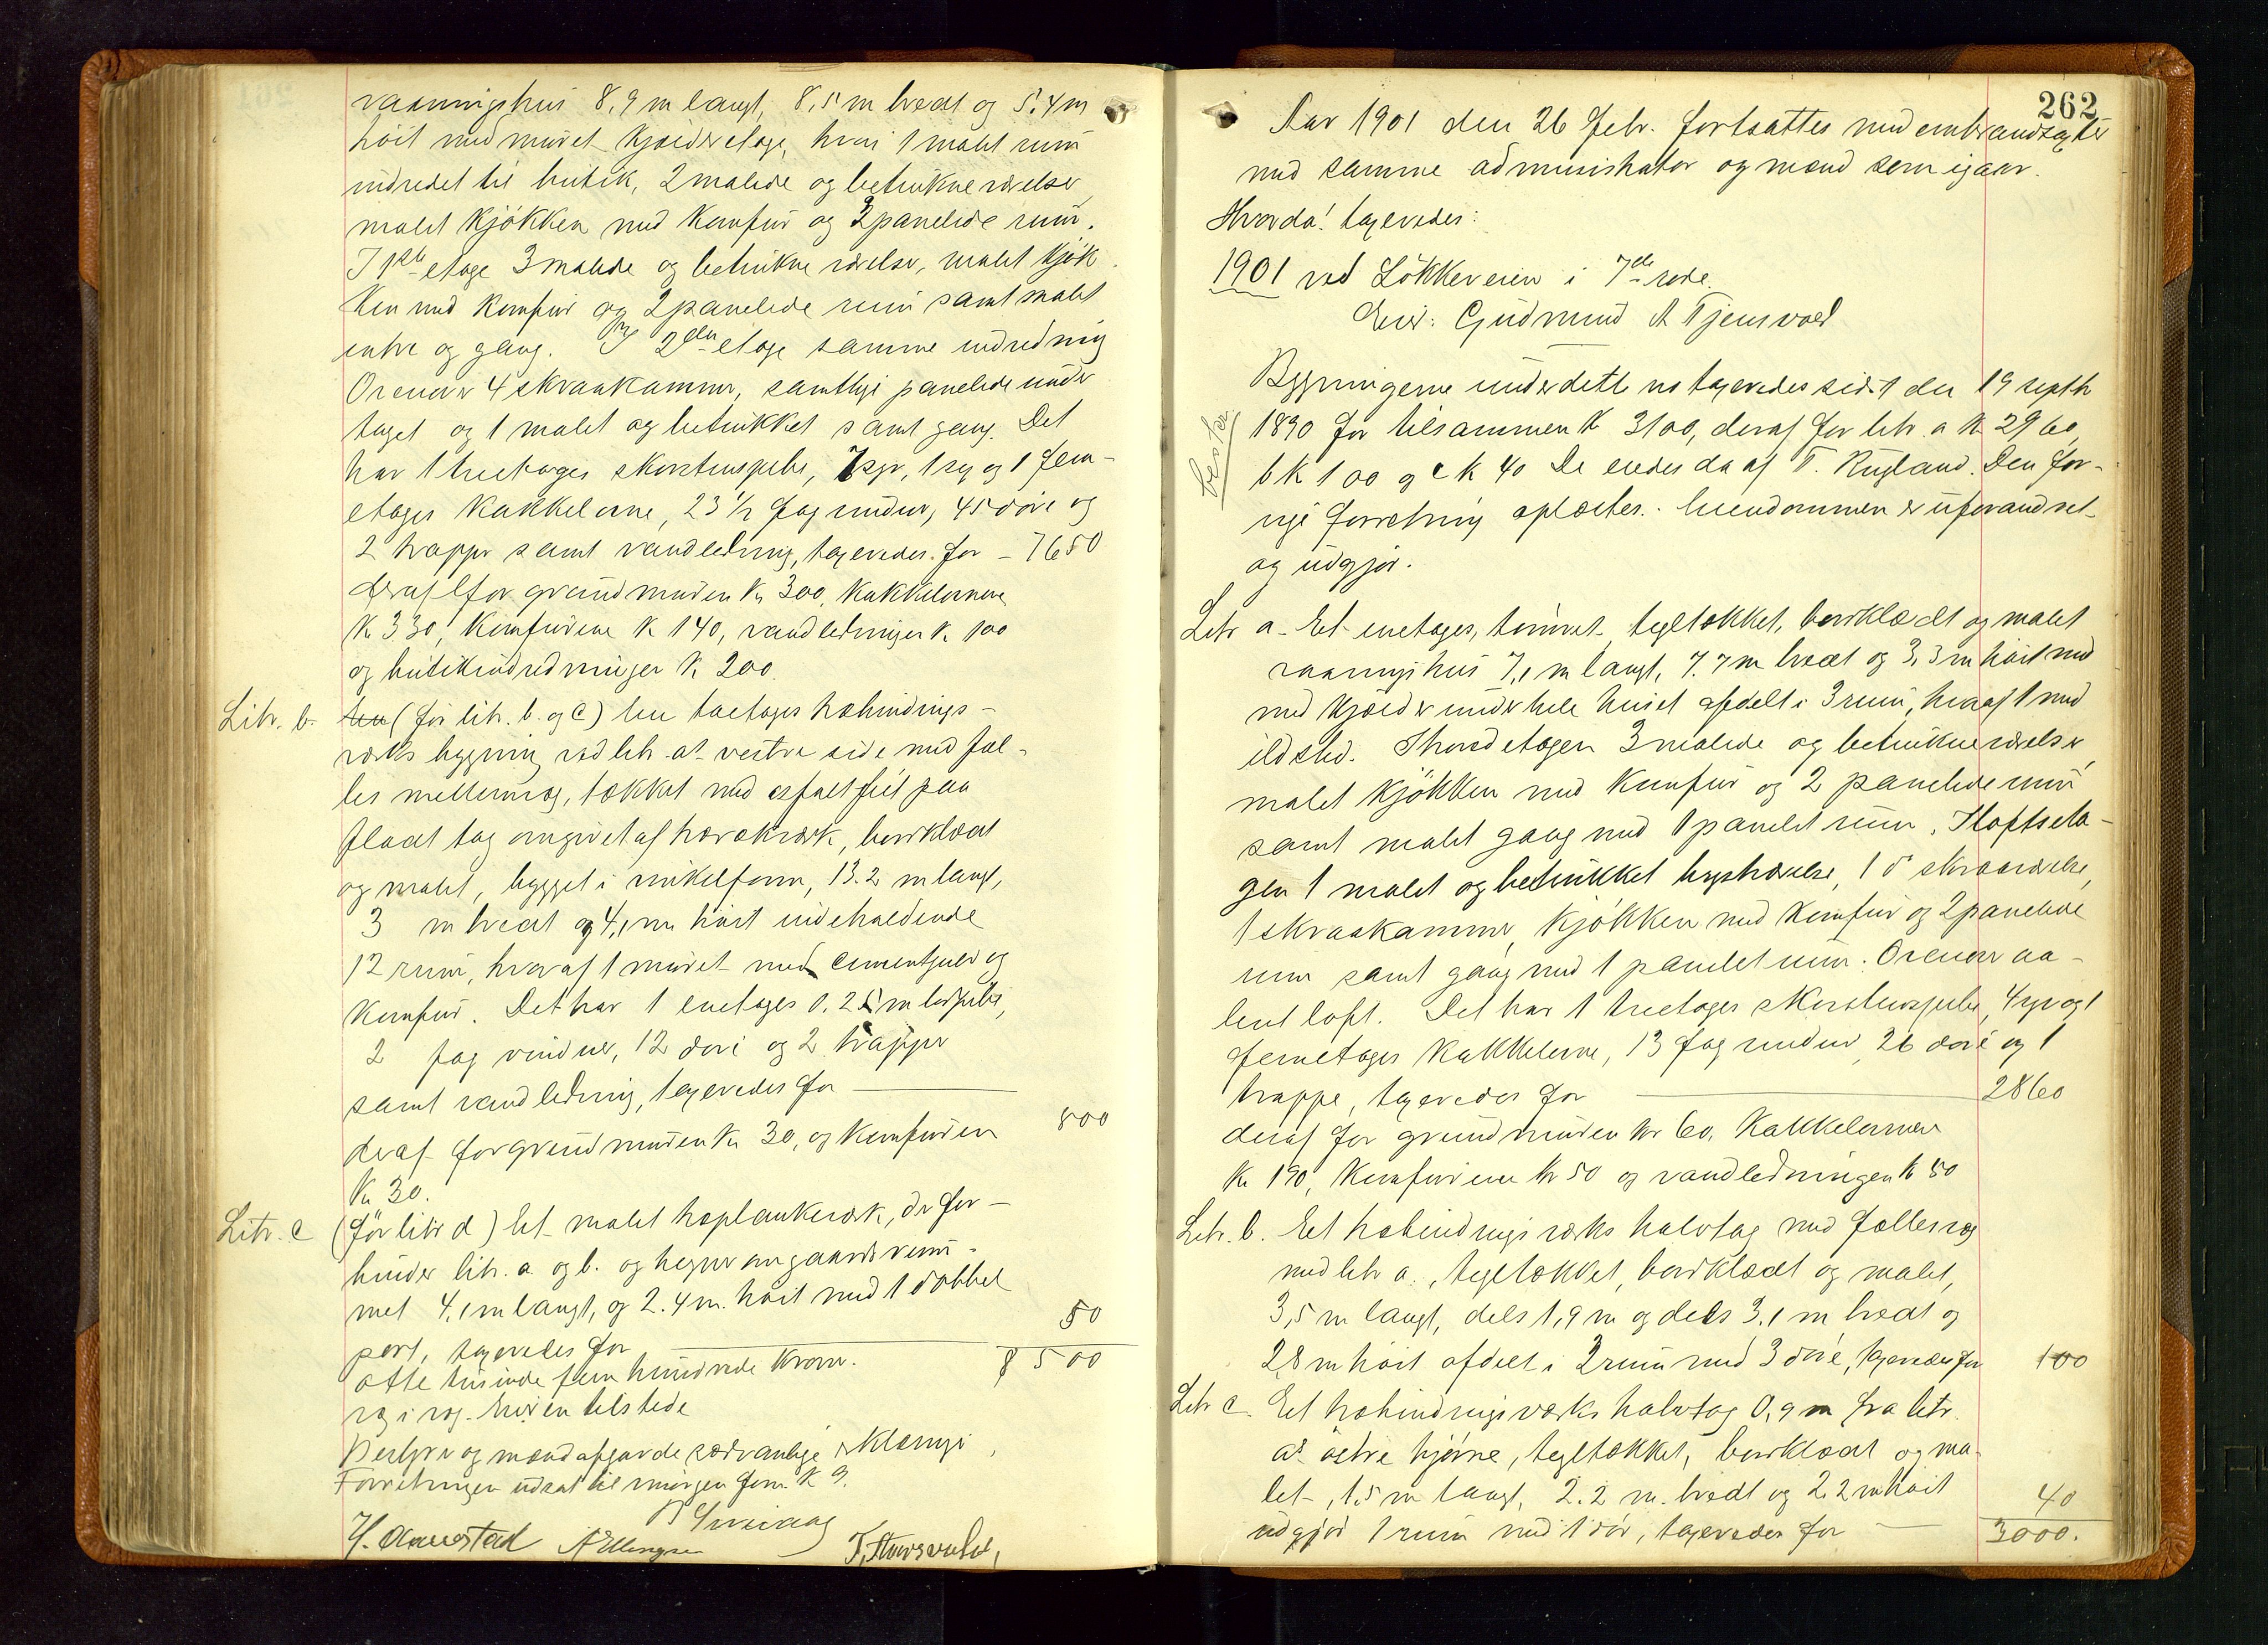 vaaningshus 8,9 m langt, 8,5 m bredt og 5,4 m
høit med muret kjælderetage, hvori 1 malet rum
indredet til butik, 2 malede og betrukne værelser,
malet kjøkken med komfur og 2 panelede rum.
I 1ste etage 3 malede og betrukne værelser, malet kjøk
ken med komfur og 2 panelede rum samt malet
entre og gang. I 2den etage samme indredning
Ovenover 4 skraakammer, samtlige panelede under
taget og 1 malet og betrukket samt gang. Det
har 1 treetages skorstenspibe, 7 syv, 1 sex og 1 fem-
etages kakkelovne, 23 1/2 fag vinduer, 45 døre og
2 trapper samt vandledning, taxeredes for - 7650
deraf for grundmuren Kr 300, kakkelovnene
Kr 330, komfurene Kr 140, vandledningen Kr 100
og butikindredningen Kr 200.
Litr. b. (før litr. b. og c) En toetages træbindings-
værks bygning ved litr. a's vestre side med fæl-
les mellemvæg, tækket med asfaltfilt paa
fladt tag omgivet af trærækværk, bordklædt
og malet, bygget i vinkelform, 13.2 m langt,
3 m bredt og 4,1 m høit indeholdende
12 rum, hvoraf 1 muret med cementgulv og
komfur. Det har 1 enetages 0.25 m lerpibe,
2 fag vinduer, 12 døre og 2 trapper
samt vandledning, taxeredes for
800
deraf for grundmuren Kr 30, og komfuren
Kr 30.
Litr. c (før litr d) Et malet træplankeværk, der for-
binder litr. a og b. og hegner om gaardsrum-
met 4,1 m langt, og 2.4 m. høit med 1 dobbel
port, taxeredes for 50
otte tusinde fem hundrede kroner. 8500
væg i væg. Eieren tilstede
Bestyrer og mænd afgav de sædvanlige erklæringer
Forretningen udsat til imorgen form. Kl 9.
A Ellingsen
262
Aar 1901 den 26 Febr. fortsattes med ombrandstaxter
med samme administrator og mænd som igaar.
Hvorda! taxeredes:
1901 ved Løkkeveien i 7de rode.
Eier: Gudmund A Tjensvold
Bygningerne under dette no taxeredes sidst den 19 septbr
1890 for tilsammen Kr 3100, deraf for litr. a Kr 2960,
b Kr 100 og c Kr 40 De eiedes da af T. Rugland. Den for-
rige forretning oplæstes. Eiendommen er uforandret
og udgjør.
Litr a. Et enetages, tømret tegltækket, bordklædt og malet
vaaningshus 7,1 m langt, 7.7 m bredt og 3,3 m høit med
med kjælder under hele huset afdelt i 3 rum, hvoraf 1 med
ildsted. I hovedetagen 3 malede og betrukne værelser,
malet kjøkken med komfur og 2 panelede rum
samt malet gang med 1 panelet rum. I loftseta-
gen 1 malet og betrukket kvistværelse, 1 do skraaværelse,
1 skraakammer, kjøkken med komfur og 2 panelede
rum samt gang med 1 panelet rum. Ovenover aa-
bent loft. Det har 1 treetages skorstenspibe, 4 syv og 1
femetages kakkelovne, 13 fag vinduer, 26 døre og 1
trappe, taxeredes for 2860
deraf for grundmuren Kr 60, kakkelovnene
Kr 190, komfurene Kr 50 og vandledningen Kr 50
Litr. b. Et træbindingsværks halvtag med fællesvæg
med litr a., tegltækket, bordklædt og malet,
3,5 m langt, dels 1,9 m og dels 3,1 m bredt og
2,8 m høit afdelt i 2 rum med 3 døre, taxeredes for 100
Litr c. Et træbindingsværks halvtag 0,9 m fra litr.
a's østre hjørne, tegltækket, bordklædt og ma-
let, 1,5 m langt, 2.2 m. bredt og 2.2 m høit
udgjør 1 rum med 1 dør, taxeredes for 40
3000.